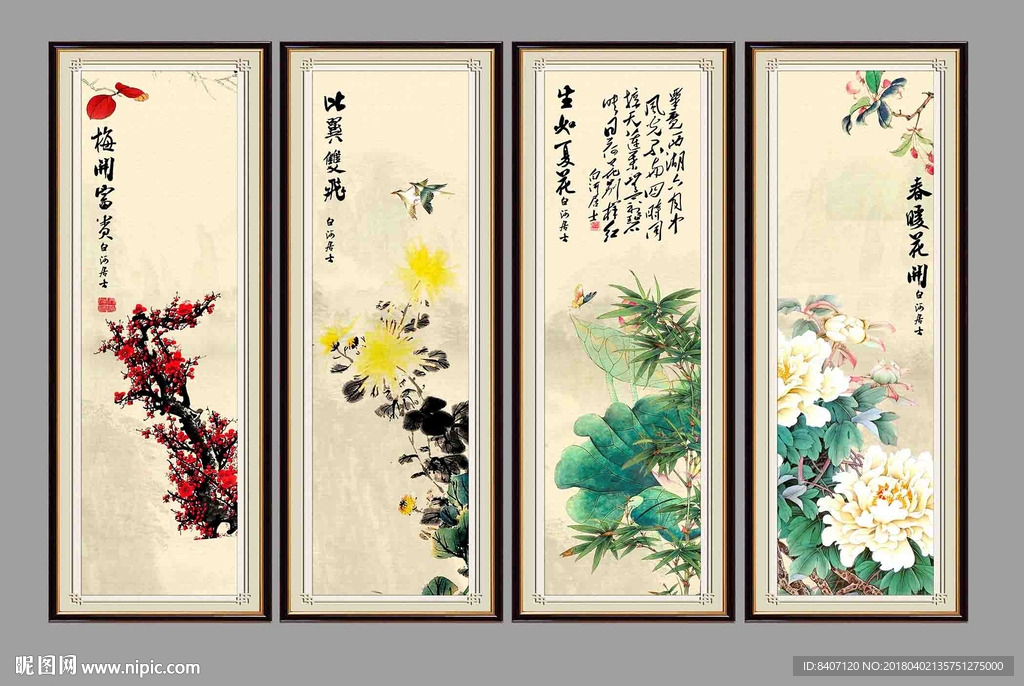 梅開富贵 白河居士
比翼雙飛 白河居士
畢竟西湖六月中
風光不与四時同
接天蓮葉無窮碧
映日荷花别様红
白河居士
生如夏花 白河居士
春暖花開 白河居士
昵图网 www.nipic.com
ID:8407120 NO:20180402135751275000